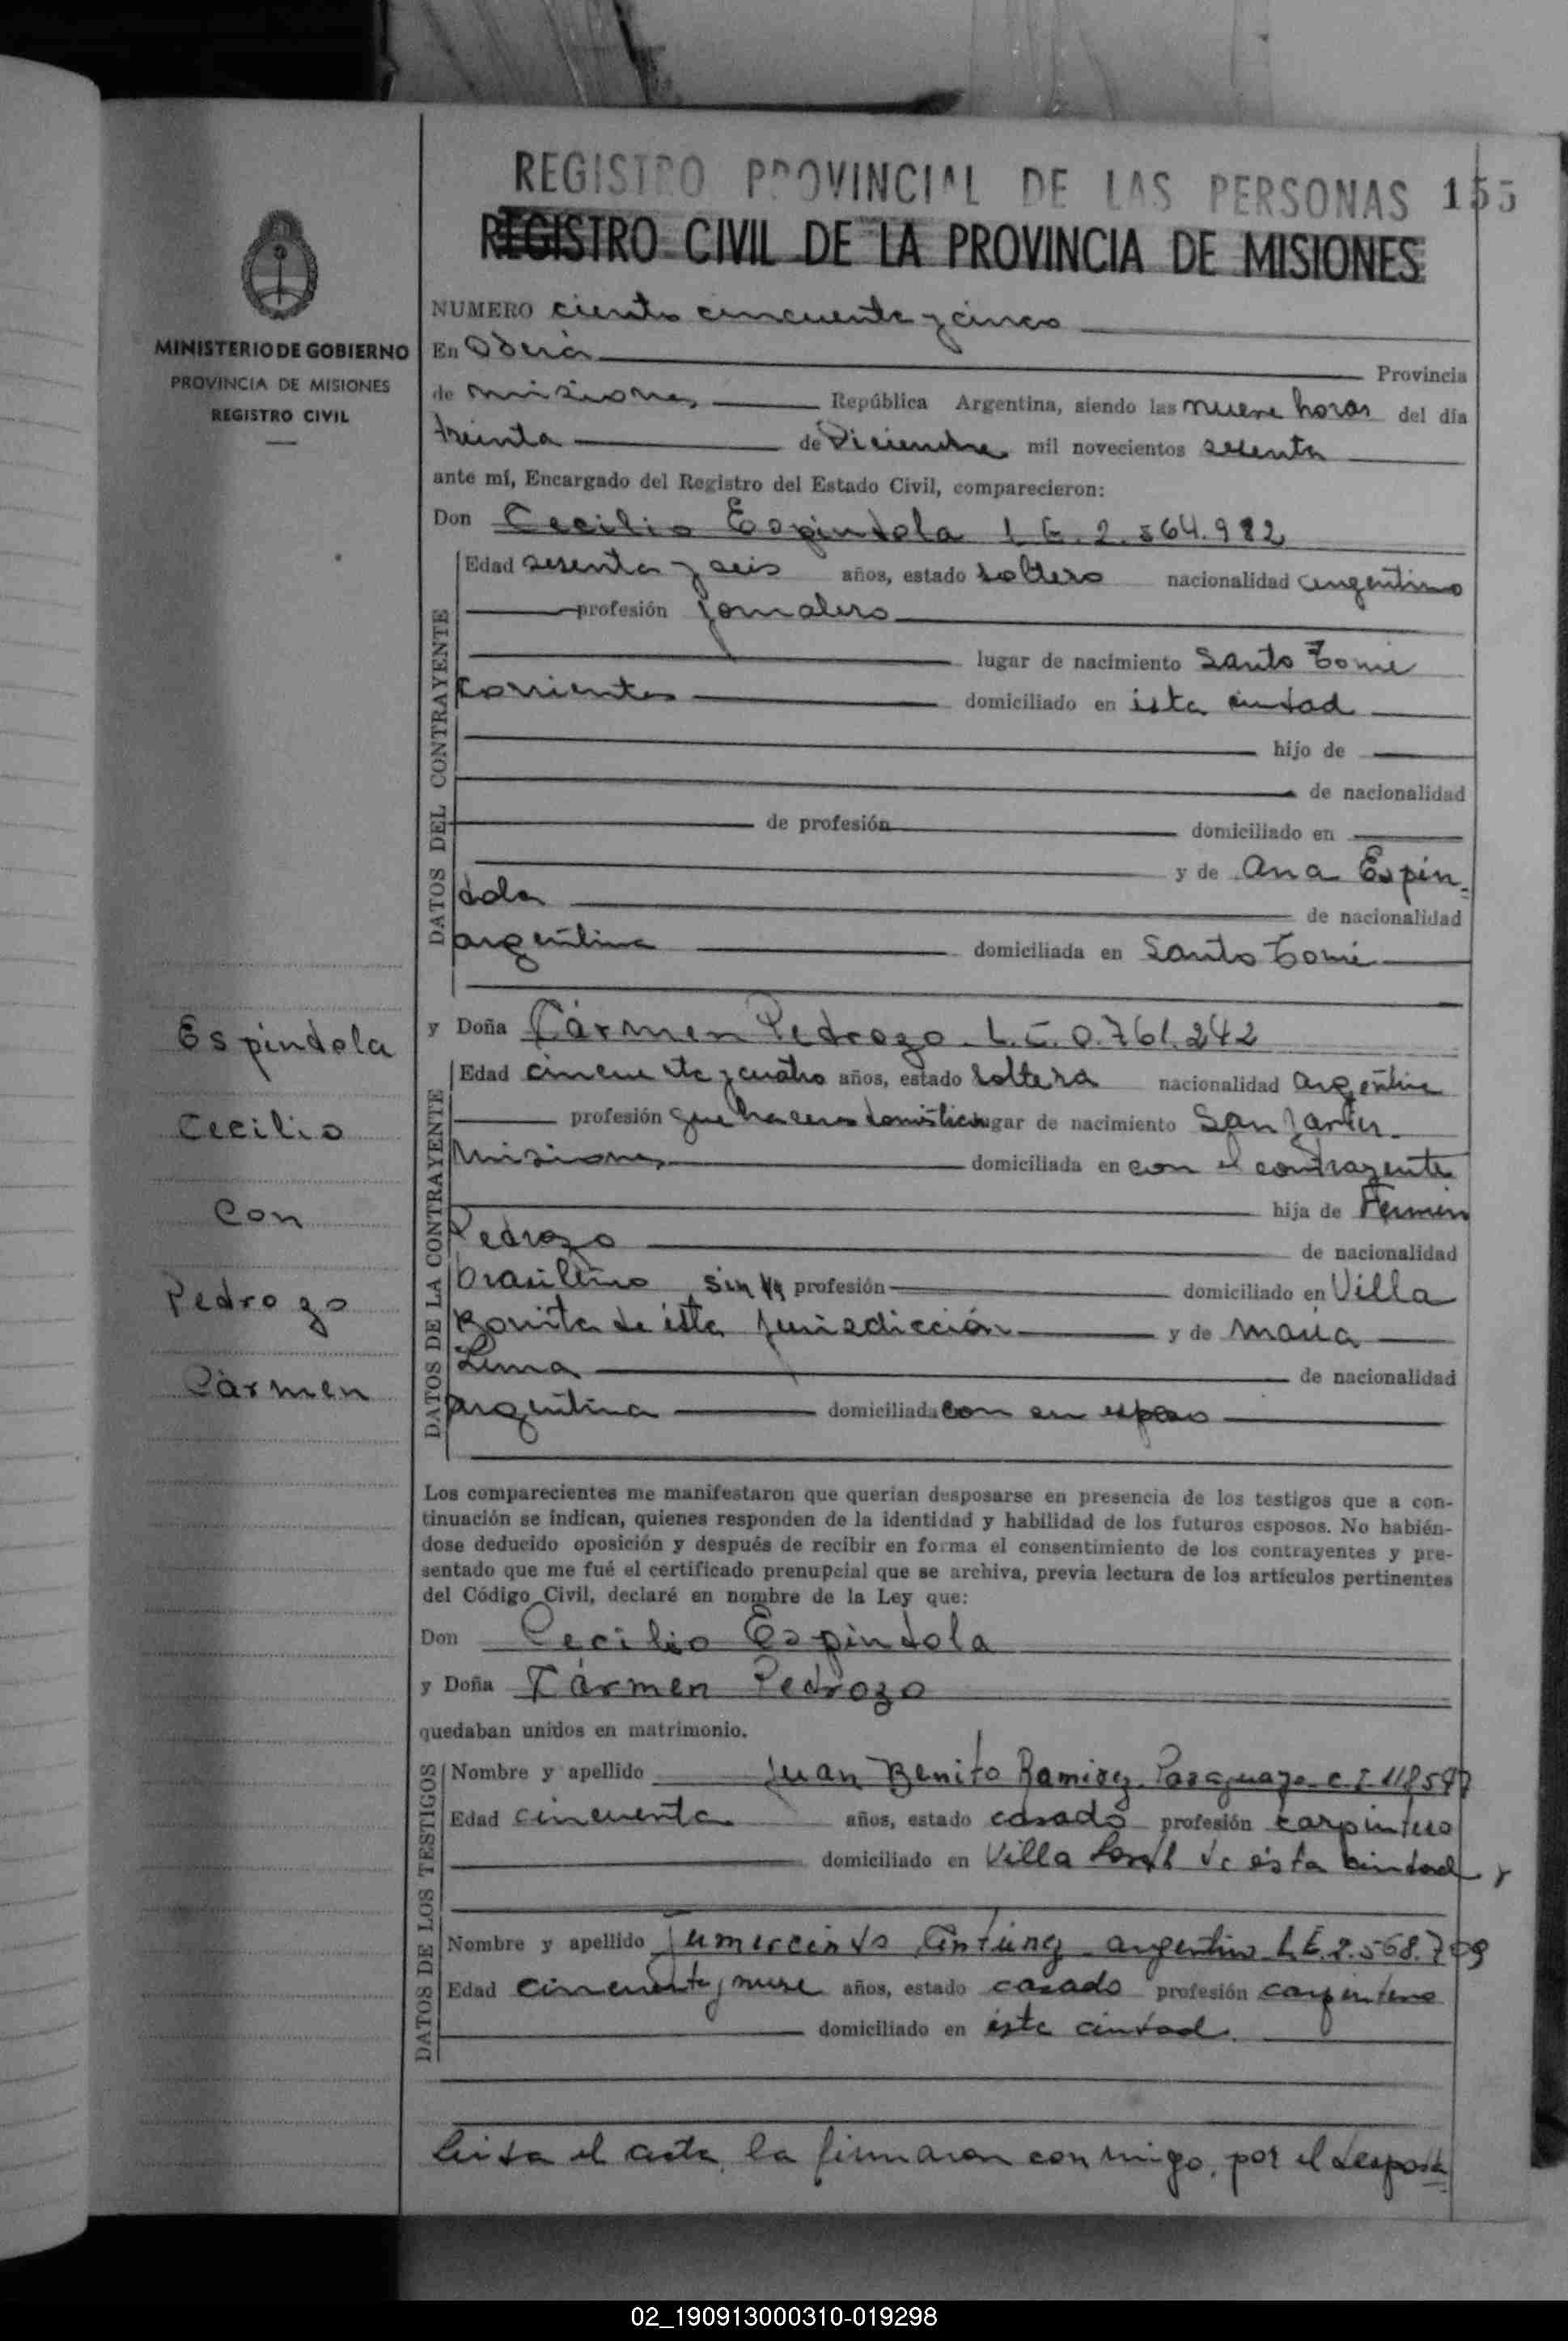 REGISTRO PROVINCIAL DE LAS PERSONAS 155
REGISTRO CIVIL DE LA PROVINCIA DE MISIONES
MINISTERIO DE GOBIERNO
PROVINCIA DE MISIONES
REGISTRO CIVIL
NUMERO ciento cincuenta y cinco
En Oberá Provincia
de misiones República Argentina, siendo las nueve horas del día
treinta de Diciembre mil novecientos setenta
ante mí, Encargado del Registro del Estado Civil, comparecieron:
Don Cecilio Espindola L E. 2.564.982
DATOS DEL CONTRAYENTE
Edad sesenta y seis años, estado soltero nacionalidad argentino
profesión jornalero
lugar de nacimiento Santo Tomé
Corrientes domiciliado en ésta ciudad
hijo de
de nacionalidad
de profesión domiciliado en
y de Ana Espín
dola de nacionalidad
argentina domiciliada en Santo Tomé
Espindola
Cecilio
Con
Pedrozo
Cármen
y Doña Cármen Pedrozo L.C. 0.761.242
DATOS DE LA CONTRAYENTE
Edad cincuenta y cuatro años, estado soltera nacionalidad argentina
profesión quehaceres domésticos lugar de nacimiento San Javier
Misiones domiciliada en con el contrayente
hija de Fermin
Pedrozo de nacionalidad
brasilero sin profesión domiciliado en Villa
Bonita de ésta jurisdicción y de María
Lima de nacionalidad
argentina domiciliada con su esposo
Los comparecientes me manifestaron que querían desposarse en presencia de los testigos que a con-
tinuación se indican, quienes responden de la identidad y habilidad de los futuros esposos. No habién-
dose deducido oposición y después de recibir en forma el consentimiento de los contrayentes y pre-
sentado que me fué el certificado prenupcial que se archiva, previa lectura de los artículos pertinentes
del Código Civil, declaré en nombre de la Ley que:
Don Cecilio Espindola
y Doña Cármen Pedrozo
quedaban unidos en matrimonio.
DATOS DE LOS TESTIGOS
Nombre y apellido Juan Benito Ramirez Paraguayo C.I
Edad cincuenta años, estado casado profesión carpintero
domiciliado en Villa de ésta ciudad y
Nombre y apellido Jumercindo Antúnez argentino L.E. 2.568.709
Edad cincuenta y nueve años, estado casado profesión carpintero
domiciliado en ésta ciudad.
Leída el acta, la firmaron conmigo, por el desposa
02_190913000310-019298